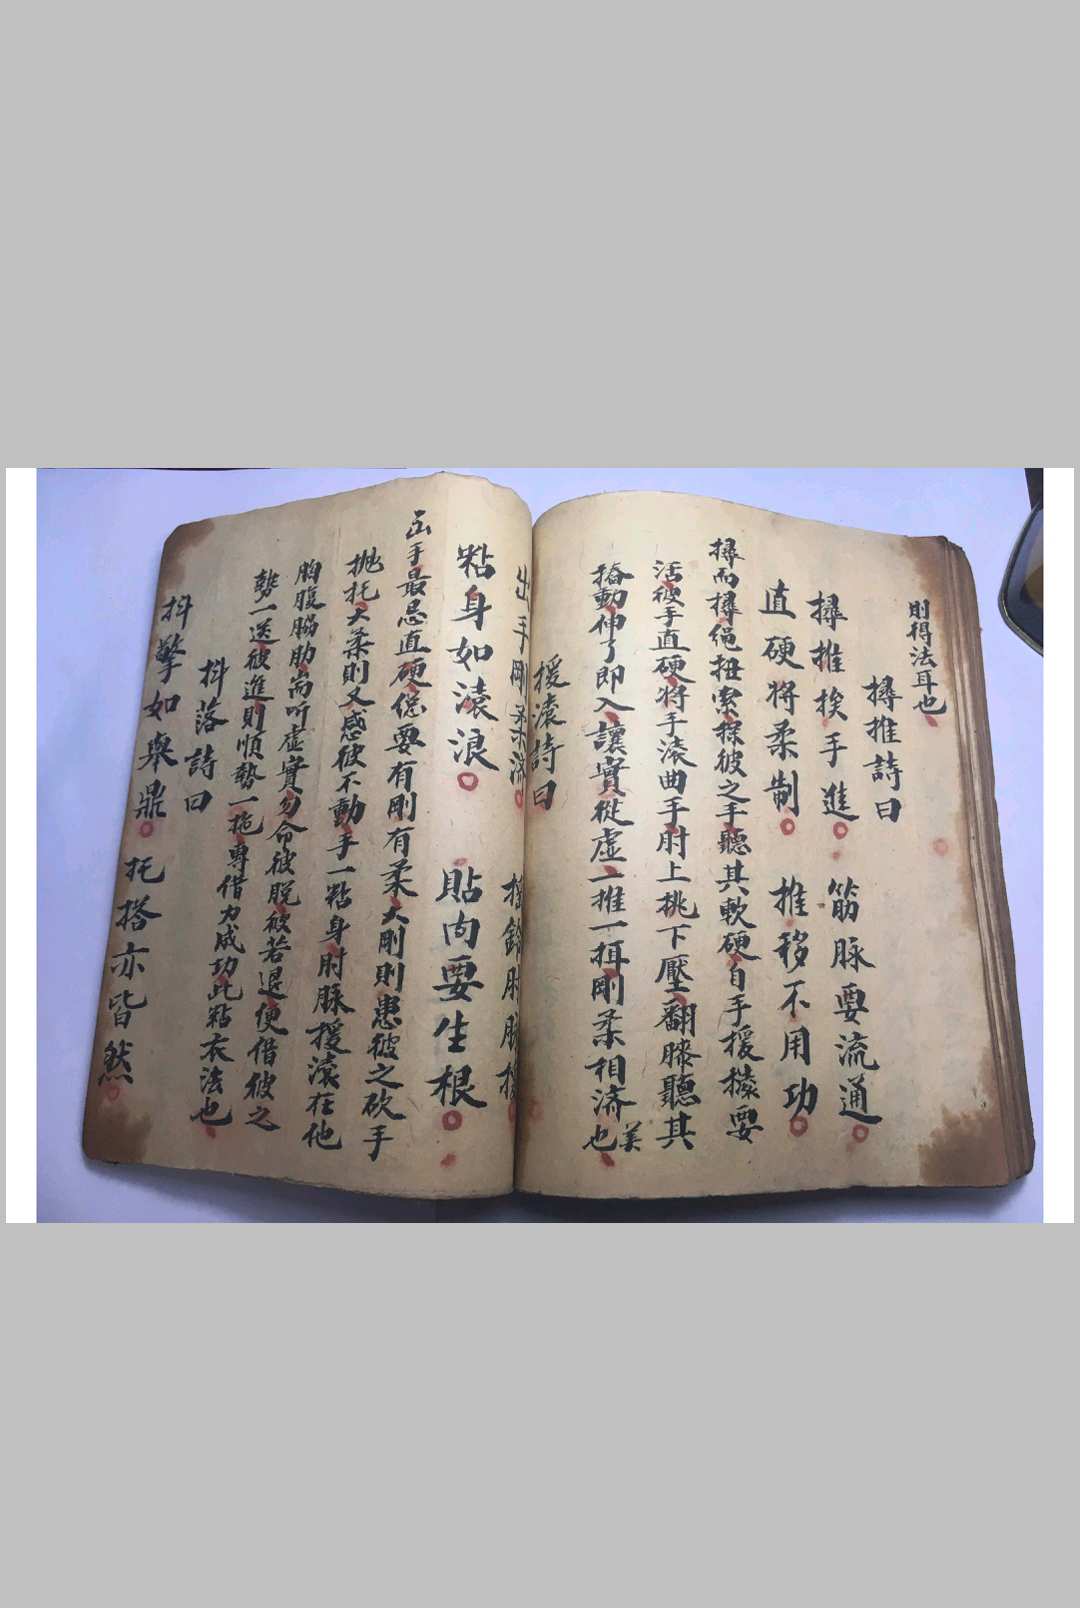 則得法耳也
撏推詩曰
撏推挨手進 筋脉要流通
直硬將柔制 推移不用功
撏而撏繩扭索探彼之手聽其軟硬自手援㨿要
活彼手直硬將手滾曲手肘上挑下壓翻䐛聽其
搐動伸了即入讓實從虛一推一挕剛柔相济美也
援滾詩曰
出手剛柔济 搖鈴肘脉援
粘身如滾浪 貼肉要生根
出手最忌直硬總要有剛有柔大剛則患彼之砍手
抛托大柔則又感彼不動手一粘身肘脉援滾在他
胸腹脇肋耑听虛實勿令彼脱彼若退便借彼之
勢一送彼進則順勢一拖專借力成功此粘衣法也
抖落詩曰
抖擎如舉鼎 托搭亦皆然